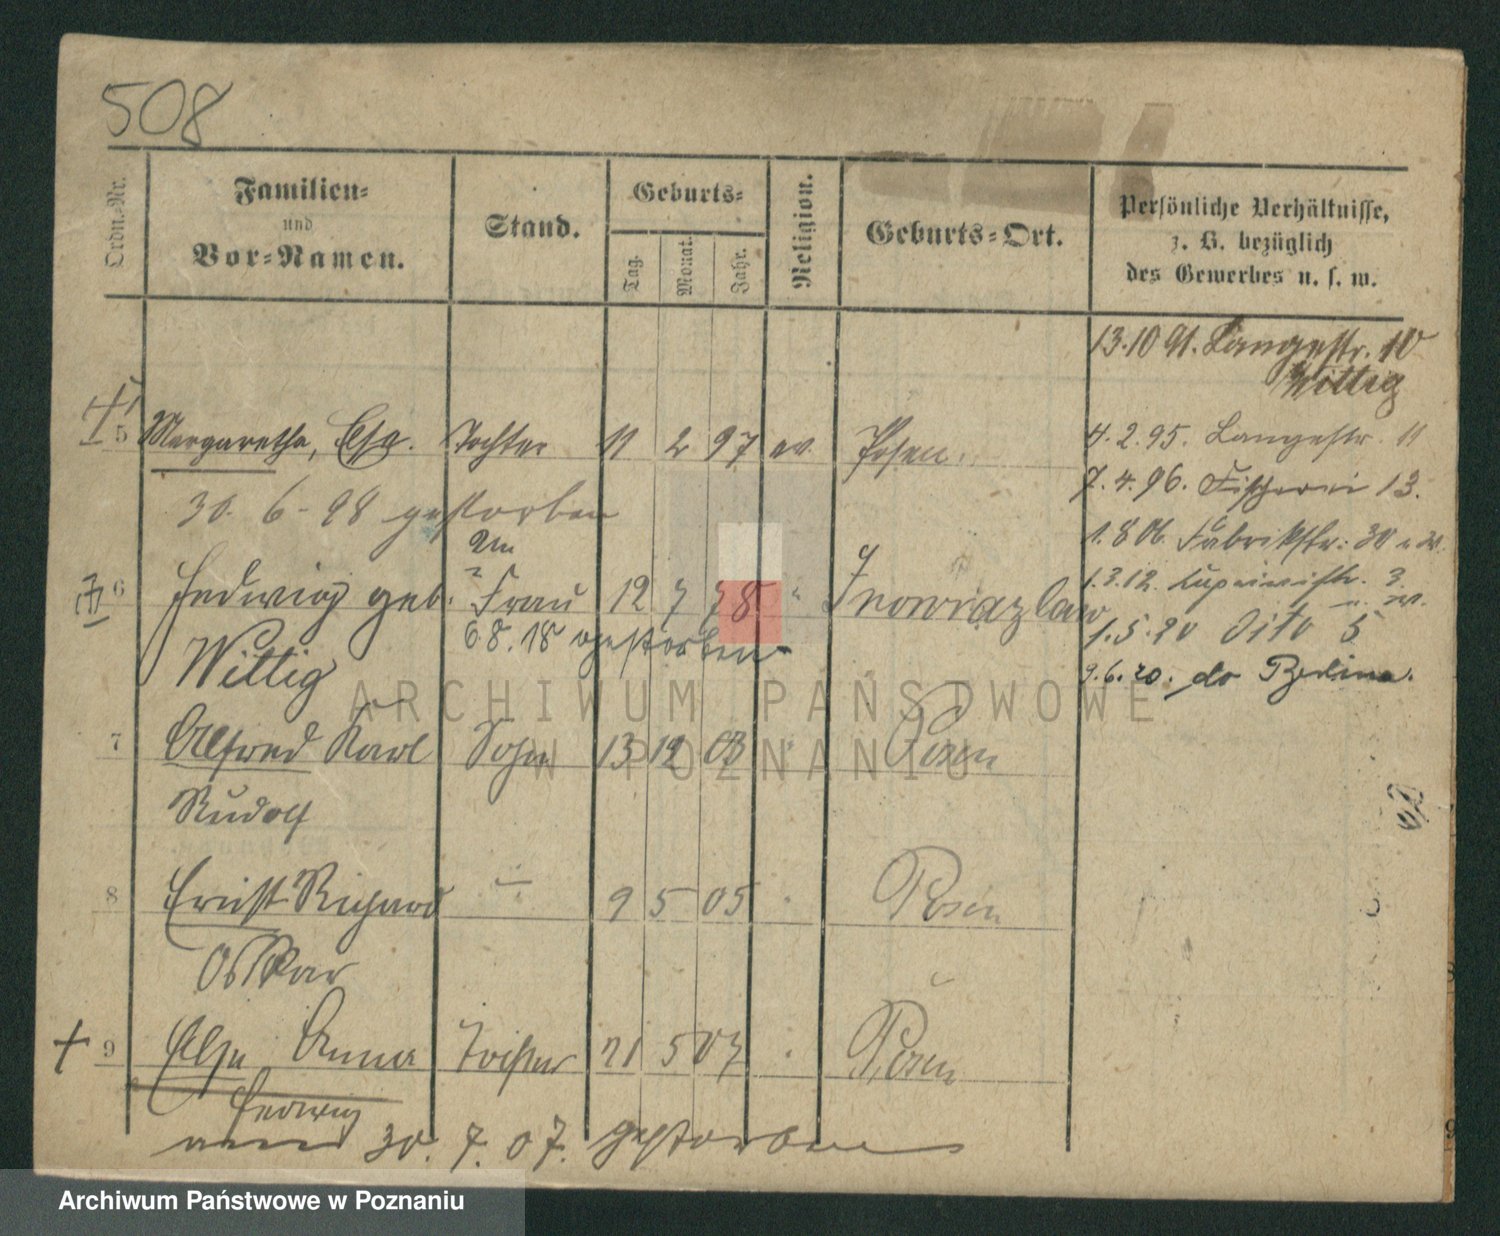 508
Ordn.-Nr.
Familien-
und
Vor-Namen.
Stand.
Geburts-
Tag.
Monat.
Jahr.
Religion.
Geburts-Ort.
Persönliche Verhältnisse,
z. B. bezüglich
des Gewerbes u. s. w.
13.10 91. Langestr. 10
Wittig
5 Margaretha, Tochter 11 2 97 ev. Posen.
4.2.95. Langestr. 11
30. 6. 98 gestorben
7.4.96. Fischerei 13.
1.8 06. Fabrikstr. 30
6 Hedwig geb. Frau 12 7 78 " Inowrazlaw
1.3.12. 3.
6.8.18 gestorben
1.5.20 Dito 5
Wittig
9.6.20. do
7 Alfred Karl Sohn 13 12 03 " Posen
Rudolf
8 Ernst Richard 9 5 05 " Posen
Osskar
9 Else Anna Tochter 21 5 07 " Posen
Hedwig
30. 7. 07. gestorben
ARCHIWUM PAŃSTWOWE
W POZNANIU
Archiwum Państwowe w Poznaniu